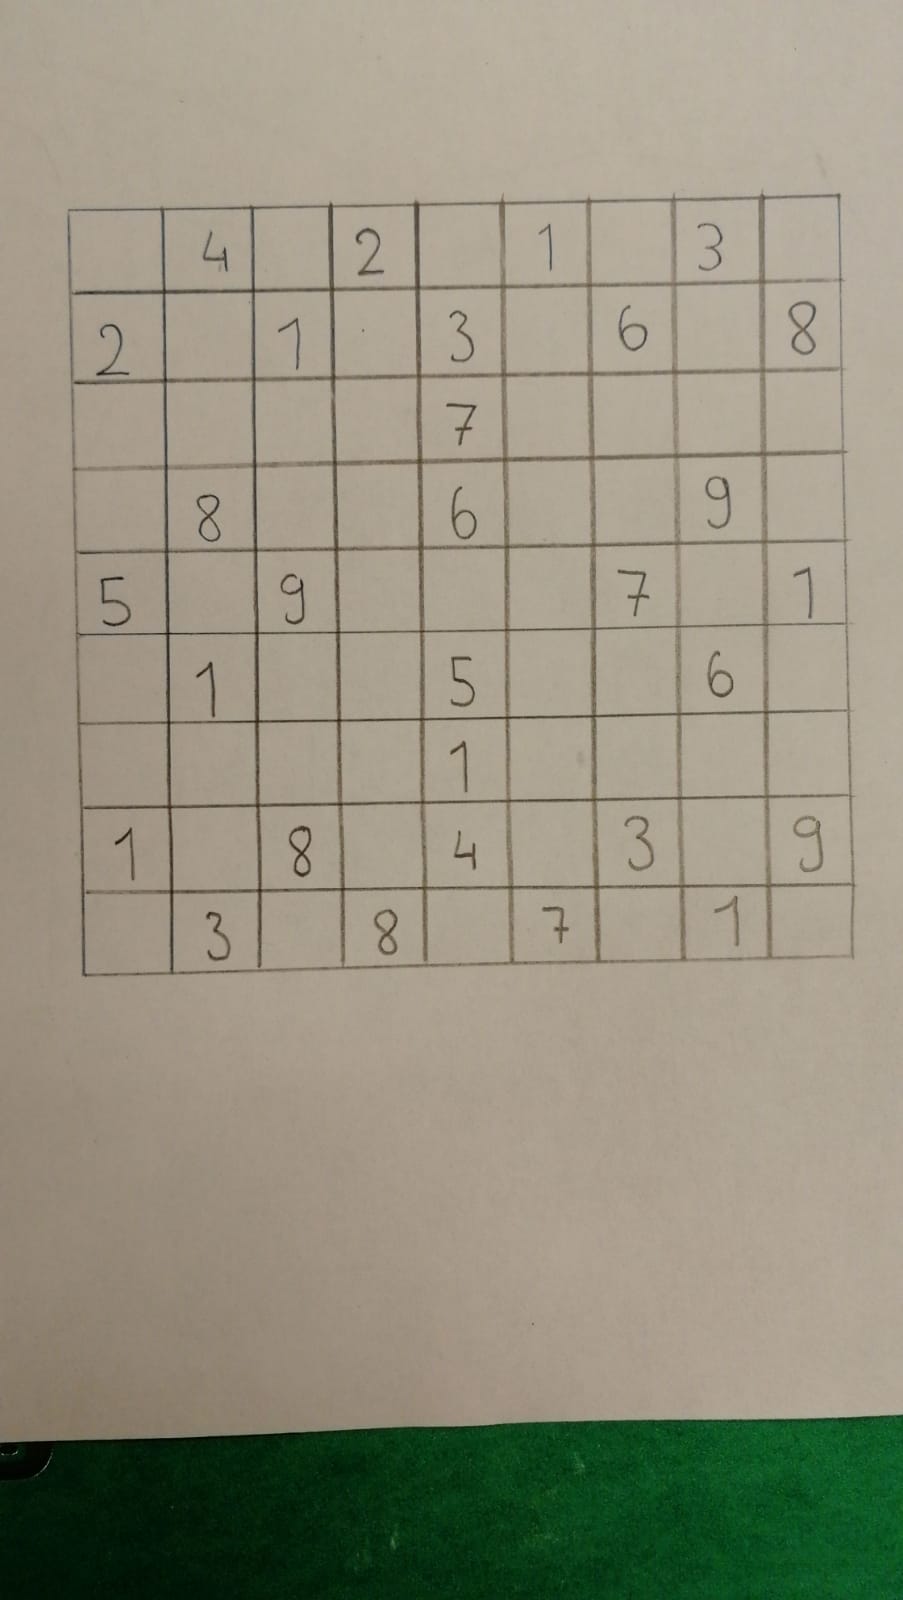 4 2 1 3
2 1 3 6 8
7
8 6 9
5 9 7 1
1 5 6
1
1 8 4 3 9
3 8 7 1